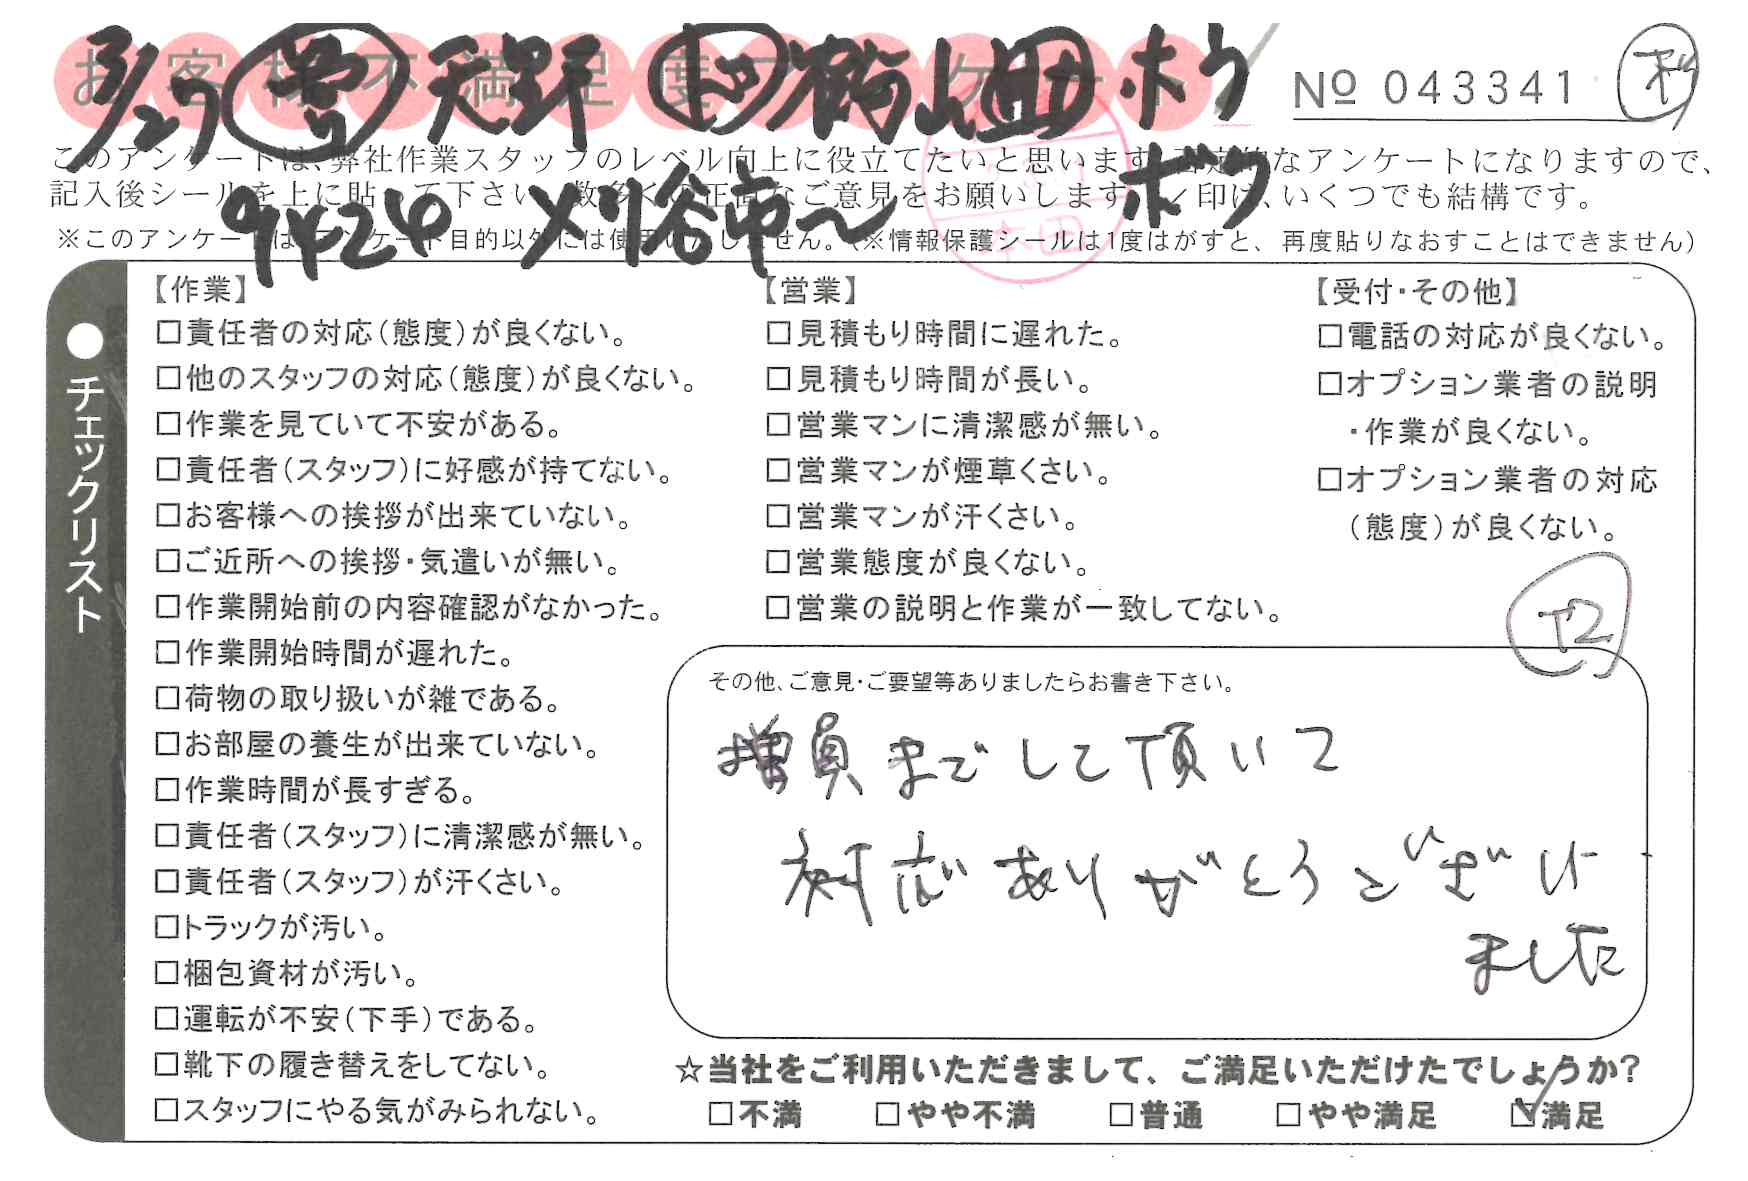 お客様不満足度アンケート
3/27 営 天野 畑 ホウ
No 043341
このアンケートは、弊社作業スタッフのレベル向上に役立てたいと思います。否定的なアンケートになりますので、
記入後シールを上に貼って下さい。数多くの正直なご意見をお願いします。✓印は、いくつでも結構です。
9424 刈谷市〜 ボウ
※このアンケートは、アンケート目的以外には使用いたしません。(※情報保護シールは1度はがすと、再度貼りなおすことはできません)
●チェックリスト
【作業】
□責任者の対応(態度)が良くない。
□他のスタッフの対応(態度)が良くない。
□作業を見ていて不安がある。
□責任者(スタッフ)に好感が持てない。
□お客様への挨拶が出来ていない。
□ご近所への挨拶・気遣いが無い。
□作業開始前の内容確認がなかった。
□作業開始時間が遅れた。
□荷物の取り扱いが雑である。
□お部屋の養生が出来ていない。
□作業時間が長すぎる。
□責任者(スタッフ)に清潔感が無い。
□責任者(スタッフ)が汗くさい。
□トラックが汚い。
□梱包資材が汚い。
□運転が不安(下手)である。
□靴下の履き替えをしてない。
□スタッフにやる気がみられない。
【営業】
□見積もり時間に遅れた。
□見積もり時間が長い。
□営業マンに清潔感が無い。
□営業マンが煙草くさい。
□営業マンが汗くさい。
□営業態度が良くない。
□営業の説明と作業が一致してない。
【受付・その他】
□電話の対応が良くない。
□オプション業者の説明
・作業が良くない。
□オプション業者の対応
(態度)が良くない。
その他、ご意見・ご要望等ありましたらお書き下さい。
増員までして頂いて
対応ありがとうございい
ました
☆当社をご利用いただきまして、ご満足いただけたでしょうか?
□不満 □やや不満 □普通 □やや満足 ☑満足